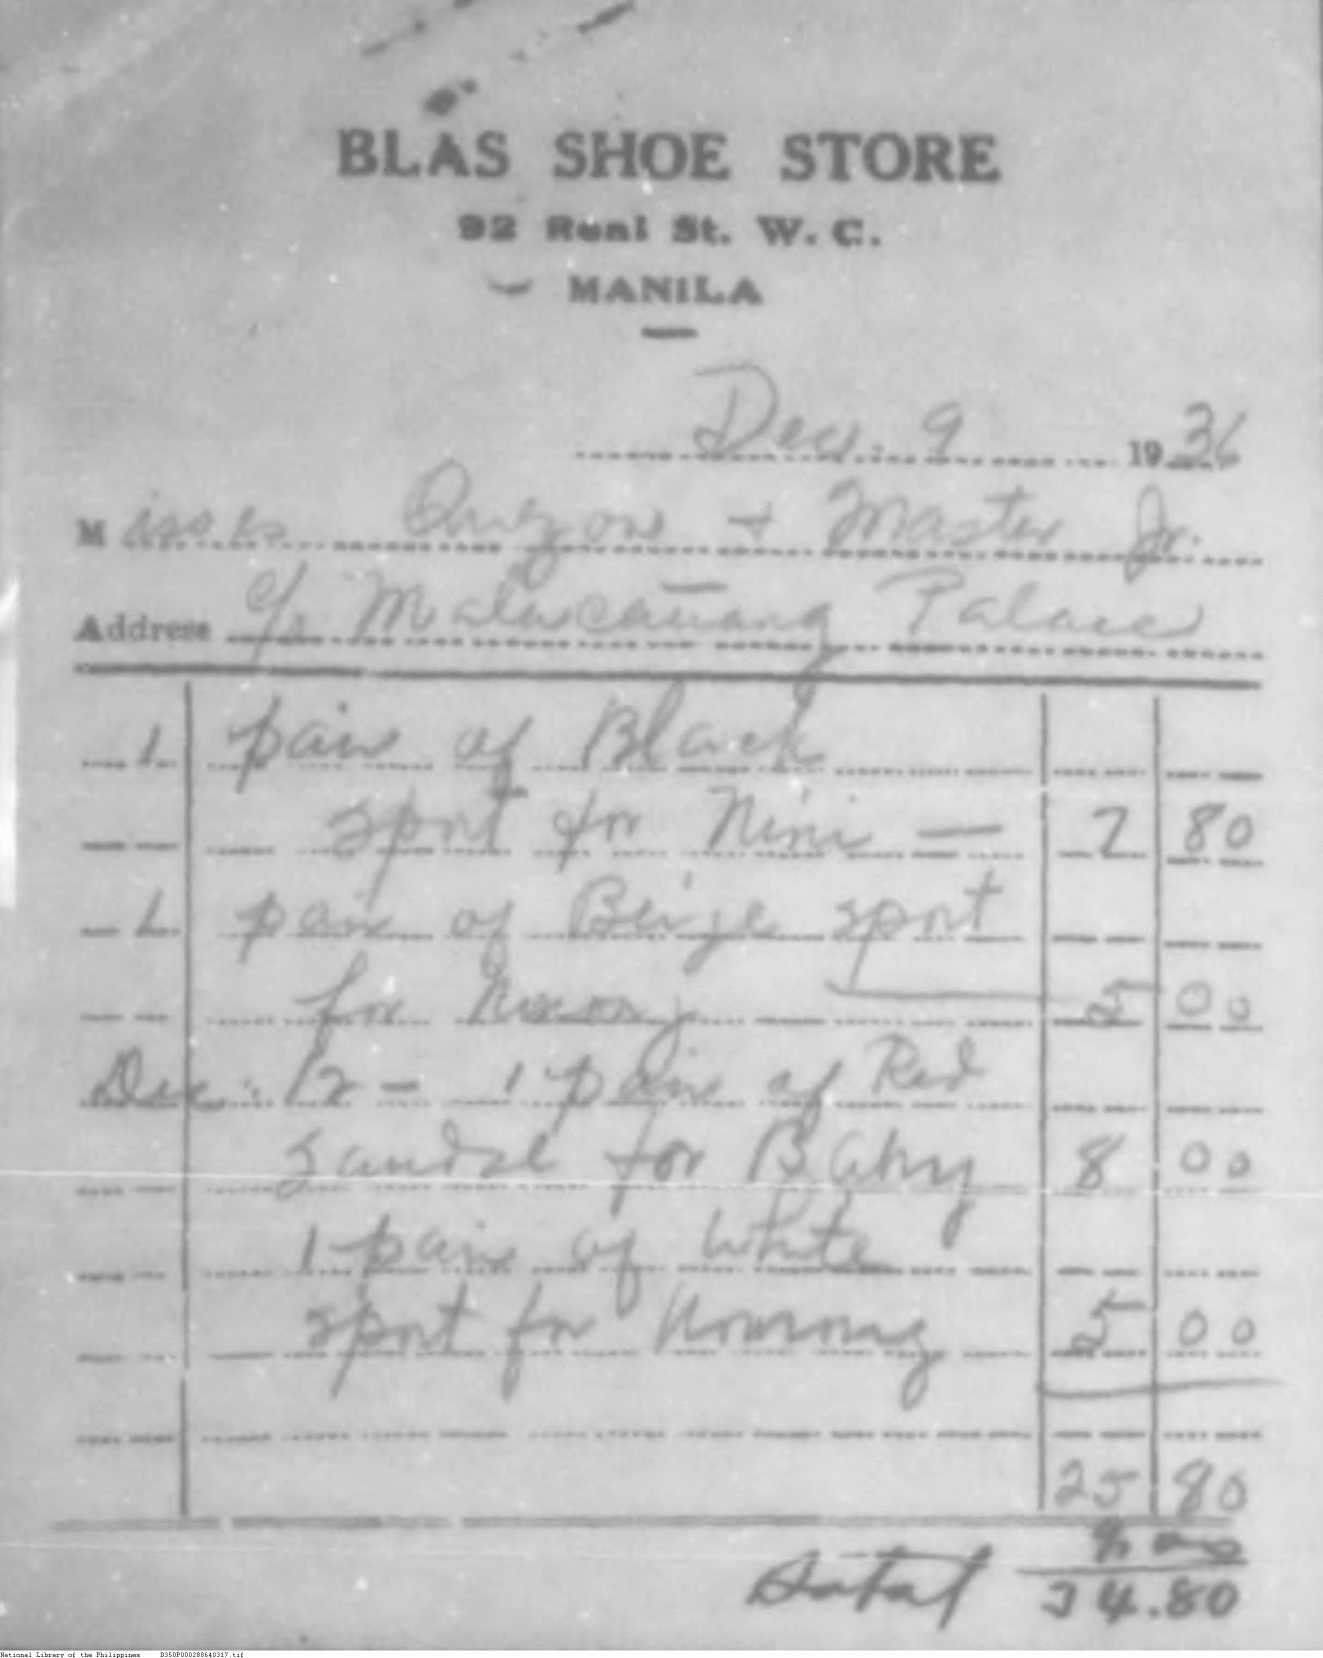 BLAS SHOE STORE
92 Real St. W. C.
MANILA
Dec. 9 1936
Misses Quezon + Master Jr.
Address c/o Malacañang Palace
1 pair of Black
sport for Nini — 7 80
1 pair of Beige sport
for Nonong 5 00
Dec. 12 - 1 pair of Red
sandal for Baby 8 00
1 pair of White
sport for Nonong 5 00
25 80
9.00
Total 34.80
National Library of the Philippines D350P000288640317.tif